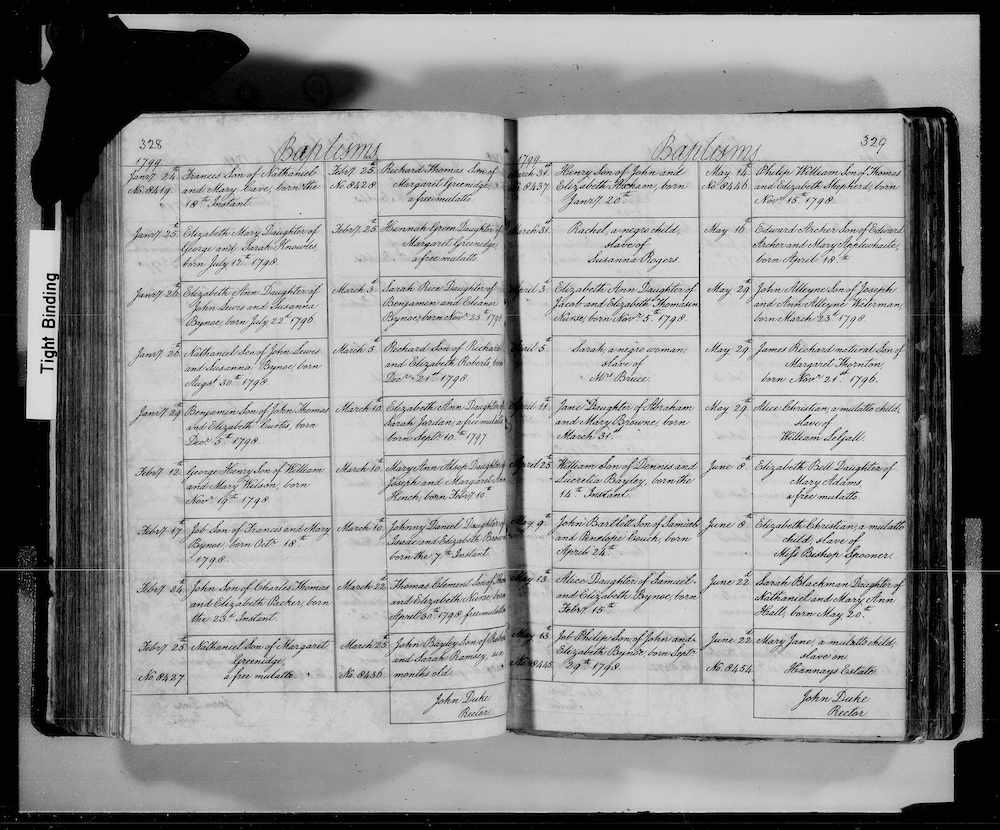 Tight Binding
328
Baptisms
1799
Janry 24th
No. 8419.
Frances Son of Nathaniel
and Mary Cave, born the
18th Instant.
Janry 25th
Elizabeth Mary Daughter of
George and Sarah Knowles
born July 12th 1798
Janry 26th
Elizabeth Ann Daughter of
John Lewis and Susanna
Bynoe, born July 22d 1796
Janry 26th
Nathaniel Son of John Lewis
and Susanna Bynoe, born
Augst 30th 1798.
Janry 29th
Benjamin Son of John Thomas
and Elizabeth Curtis, born
Decr 5th 1798
Febry 12th
George Henry Son of William
and Mary Wilson, born
Novr 19th 1798.
Febry 17th
Job Son of Frances and Mary
Bynoe, born Octr 18th
1798.
Febry 24th
John Son of Charles Thomas
and Elizabeth Packer, born
the 23d Instant.
Febry 25th
No. 8427
Nathaniel Son of Margaret
Greenidge,
a free mulatto.
Febry 25th
No. 8428
Richard Thomas Son of
Margaret Greenidge,
a free mulatto
Febry 25th
Hannah Green Daughter of
Margaret Greenidge,
a free mulatto
March 3d
Sarah Rice Daughter of
Benjamin and
Bynoe, born Novr 23d 1798
March 5th
Richard Son of Richard
and Elizabeth Roberts, born
Decr 21st 1798
March 10th
Elizabeth Ann Daughter
Sarah Jordan, a free mulatto
born Septr 10th 1797
March 10th
Mary Ann Alsop Daughter
Joseph and Margaret Ann
Hinch, born Febry 10th
March 10th
Johnny Daniel Daughter of
Isaac and Elizabeth
born the 7th Instant
March 22d
Thomas Clement Son of
and Elizabeth Nurse, born
April 30th 1798 free mulatto
March 25th
No. 8436
John Bayley Son of
and Sarah Ramsey, six
months old.
John Duke
Rector
329
Baptisms
1799
March 31st
No. 8437
Henry Son of John and
Elizabeth born
Janry 20th
March 31st
Rachel, a negro child,
slave of
Susanna Rogers.
April 3d
Elizabeth Ann Daughter of
Jacob and Elizabeth Thomasin
Nurse, born Novr 5th 1798
April 5th
Sarah, a negro woman,
slave of
Mrs Bruce.
April 11th
Jane Daughter of Abraham
and Mary Browne, born
March 31st
April 25th
William Son of Dennis and
Lucretia Bayley, born the
14th Instant.
May 9th
John Bartlett Son of
and Penelope Couch, born
April 24th
May 13th
Alice Daughter of Samuel
and Elizabeth Bynoe, born
Febry 15th
May 13th
No. 8445
Job Philip Son of John and
Elizabeth Bynoe, born Septr
29th 1798
May 14th
No. 8446
Philip William Son of Thomas
and Elizabeth Shepherd, born
Novr 15th 1798
May 16th
Edward Archer Son of Edward
Archer and Mary Applewhaite,
born April 18th
May 29th
John Alleyne Son of Joseph
and Ann Alleyne Wiltshire,
born March 23d 1798
May 29th
James Richard natural Son of
Margaret Thornton
born Novr 21st 1796.
May 29th
Alice Christian, a mulatto child,
slave of
William
June 8th
Elizabeth Bell Daughter of
Mary Adams
a free mulatto.
June 8th
Elizabeth Christian, a mulatto
child, slave of
Miss Bishop Spooner.
June 22d
Sarah Blackman Daughter of
Nathaniel and Mary Ann
Hall, born May 20th
June 22d
No. 8454
Mary Jane, a mulatto child,
slave on
Hannays Estate
John Duke
Rector